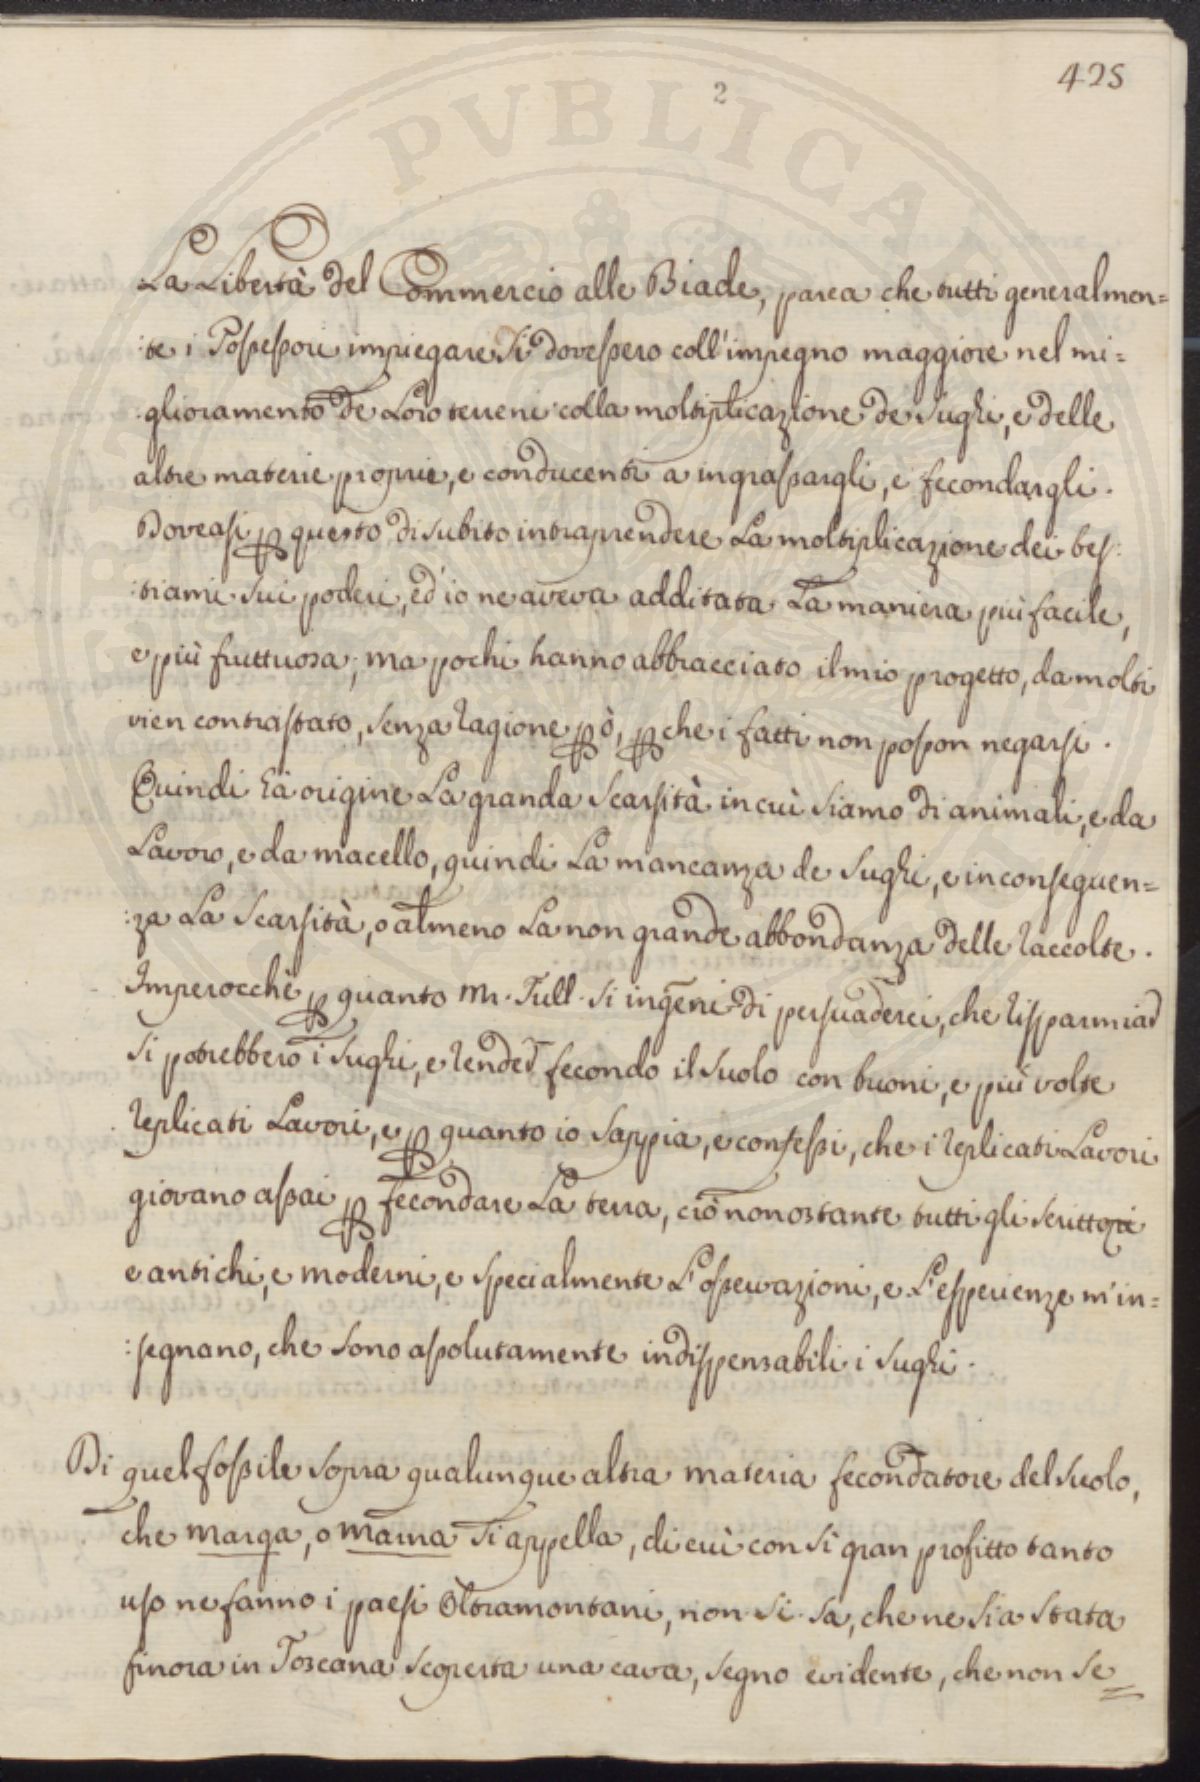 425
2
La Libertà del Commercio alle Biade, parea che tutti generalmen=
:te i Possessori impiegare si dovessero coll'impegno maggiore nel mi=
:glioramento de Loro terreni colla moltiplicazione de sughi, e delle
altre materie proprie, e conducenti a ingrassargli, e fecondargli.
Doveasi p questo di subito intraprendere La moltiplicazione dei bes:
:tiami sui poderi, ed io ne aveva additata La maniera più facile,
e più fruttuosa; ma pochi hanno abbracciato il mio progetto, da molti
vien contrastato, senza ragione pò, pche i fatti non posson negarsi.
Quindi hà origine La granda scarsità in cui siamo di animali, e da
Lavoro, e da macello, quindi La mancanza de sughi, e in conseguen=
:za La scarsità, o almeno La non grande abbondanza delle raccolte.
Imperocchè p quanto Mr. Tull si ingeni di persuaderci, che risparmiad
si potrebbero i sughi, e rended fecondo il suolo con buoni, e più volte
replicati Lavori, e p quanto io sappia, e confessi, che i replicati Lavori
giovano assai p fecondare La terra, ciò nonostante tutti gli scrittori
e antichi, e moderni, e specialmente L'osservazioni, e L'esperienze m'in=
:segnano, che sono assolutamente indispensabili i sughi.
Di quel fossile sopra qualunque altra materia fecondatore del suolo,
che marga, o marna si appella, di cui con sì gran profitto tanto
uso ne fanno i paesi Oltramontani, non si sa, che ne sia stata
finora in Toscana scoperta una cava, segno evidente, che non se=
PUBLICAE